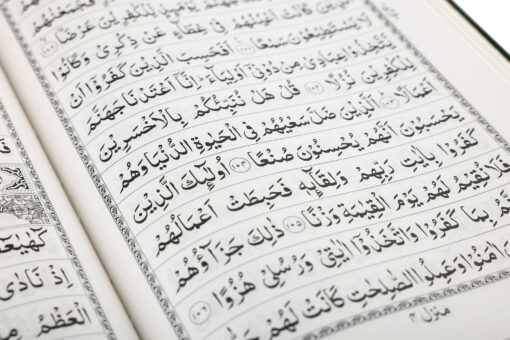 فَجَمَعْنٰهُمْ
لِّلْكٰفِرِيْنَ عَرْضَا
الَّذِيْنَ كَانَتْ اَعْيُنُهُمْ فِيْ غِطَآءٍ عَنْ ذِكْرِيْ وَكَانُوْا
لَا يَسْتَطِيْعُوْنَ سَمْعًا ۱۰۱ اَفَحَسِبَ الَّذِيْنَ كَفَرُوْٓا اَنْ
يَّتَّخِذُوْا عِبَادِيْ مِنْ دُوْنِيْٓ اَوْلِيَآءَ اِنَّآ اَعْتَدْنَا جَهَنَّمَ
لِلْكٰفِرِيْنَ نُزُلًا ۱۰۲ قُلْ هَلْ نُنَبِّئُكُمْ بِالْاَخْسَرِيْنَ
اَعْمَالًا ۱۰۳ اَلَّذِيْنَ ضَلَّ سَعْيُهُمْ فِي الْحَيٰوةِ الدُّنْيَا وَهُمْ
يَحْسَبُوْنَ اَنَّهُمْ يُحْسِنُوْنَ صُنْعًا ۱۰۴ اُولٰٓئِكَ الَّذِيْنَ
كَفَرُوْا بِاٰيٰتِ رَبِّهِمْ وَلِقَآئِهٖ فَحَبِطَتْ اَعْمَالُهُمْ
فَلَا نُقِيْمُ لَهُمْ يَوْمَ الْقِيٰمَةِ وَزْنًا ۱۰۵ ذٰلِكَ جَزَآؤُهُمْ
بِمَا كَفَرُوْا وَاتَّخَذُوْٓا اٰيٰتِيْ وَرُسُلِيْ هُزُوًا ۱۰۶
اٰمَنُوْا وَعَمِلُوا الصّٰلِحٰتِ كَانَتْ لَهُمْ
منزل ٤
كٓهٰيٰعٓصٓ
اِذْ نَادٰى
الْعَظْمُ